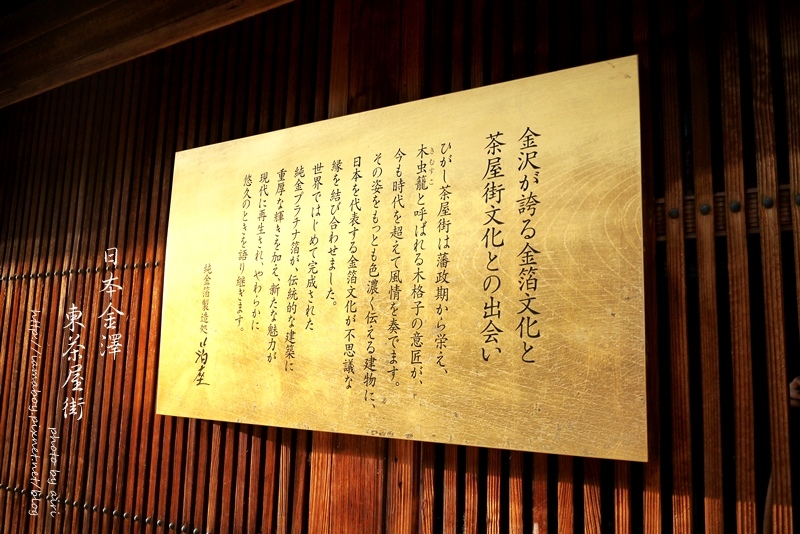 金沢が誇る金箔文化と
茶屋街文化との出会い
ひがし茶屋街は藩政期から栄え、
きむすこ
木虫籠と呼ばれる木格子の意匠が、
今も時代を超えて風情を奏でます。
その姿をもっとも色濃く伝える建物に、
日本を代表する金箔文化が不思議な
縁を結び合わせました。
世界ではじめて完成された
純金プラチナ箔が、伝統的な建築に
重厚な輝きを加え、新たな魅力が
現代に再生され、やわらかに
悠久のときを語り継ぎます。
純金箔製造処 箔座
日本金澤
東茶屋街
http://hamaboy.pixnet.net/blog
photo by airi